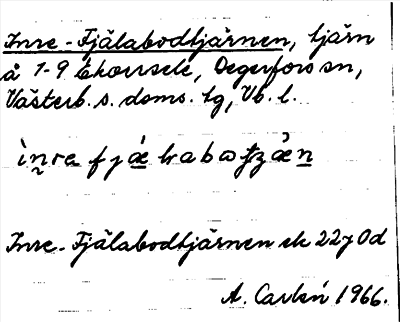 Inre-Fjälabodtjärnen, tjärn
å 1-9 Ekorrsele, Degerfors sn,
Västerb. s. doms. tg, Vb. l.
Inre-Fjälabodtjärnen ek 22 J 0 d
A. Carlén 1966.